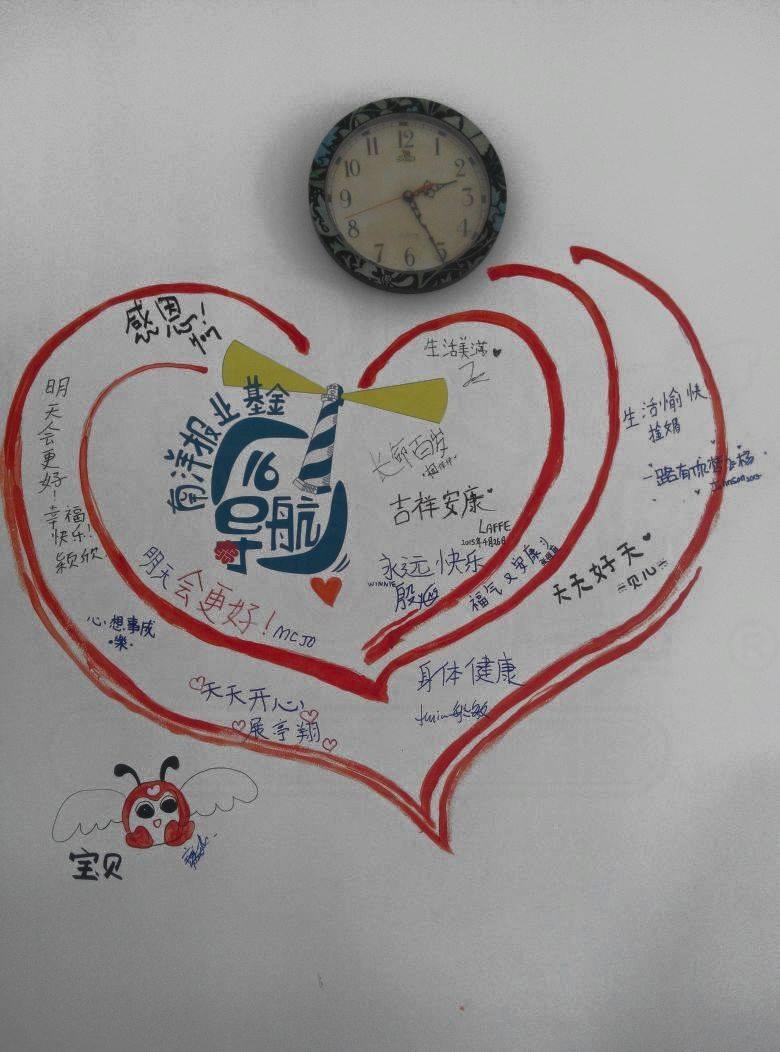 12
1
2
3
4
5
6
7
8
9
10
11
感恩!
生活美满
明天会更好!
幸福
快乐!
颖欣
南洋报业基金
领航
长命百岁
吉祥安康
LAFFE
2015年4月26日
永远快乐
WINNIE
殷
福气又安康
生活愉快
一路有
Johnson 2015
天天好天
贝儿
明天会更好!
MCJO
心想事成
樂
天天开心
展亭翔
身体健康
宝贝